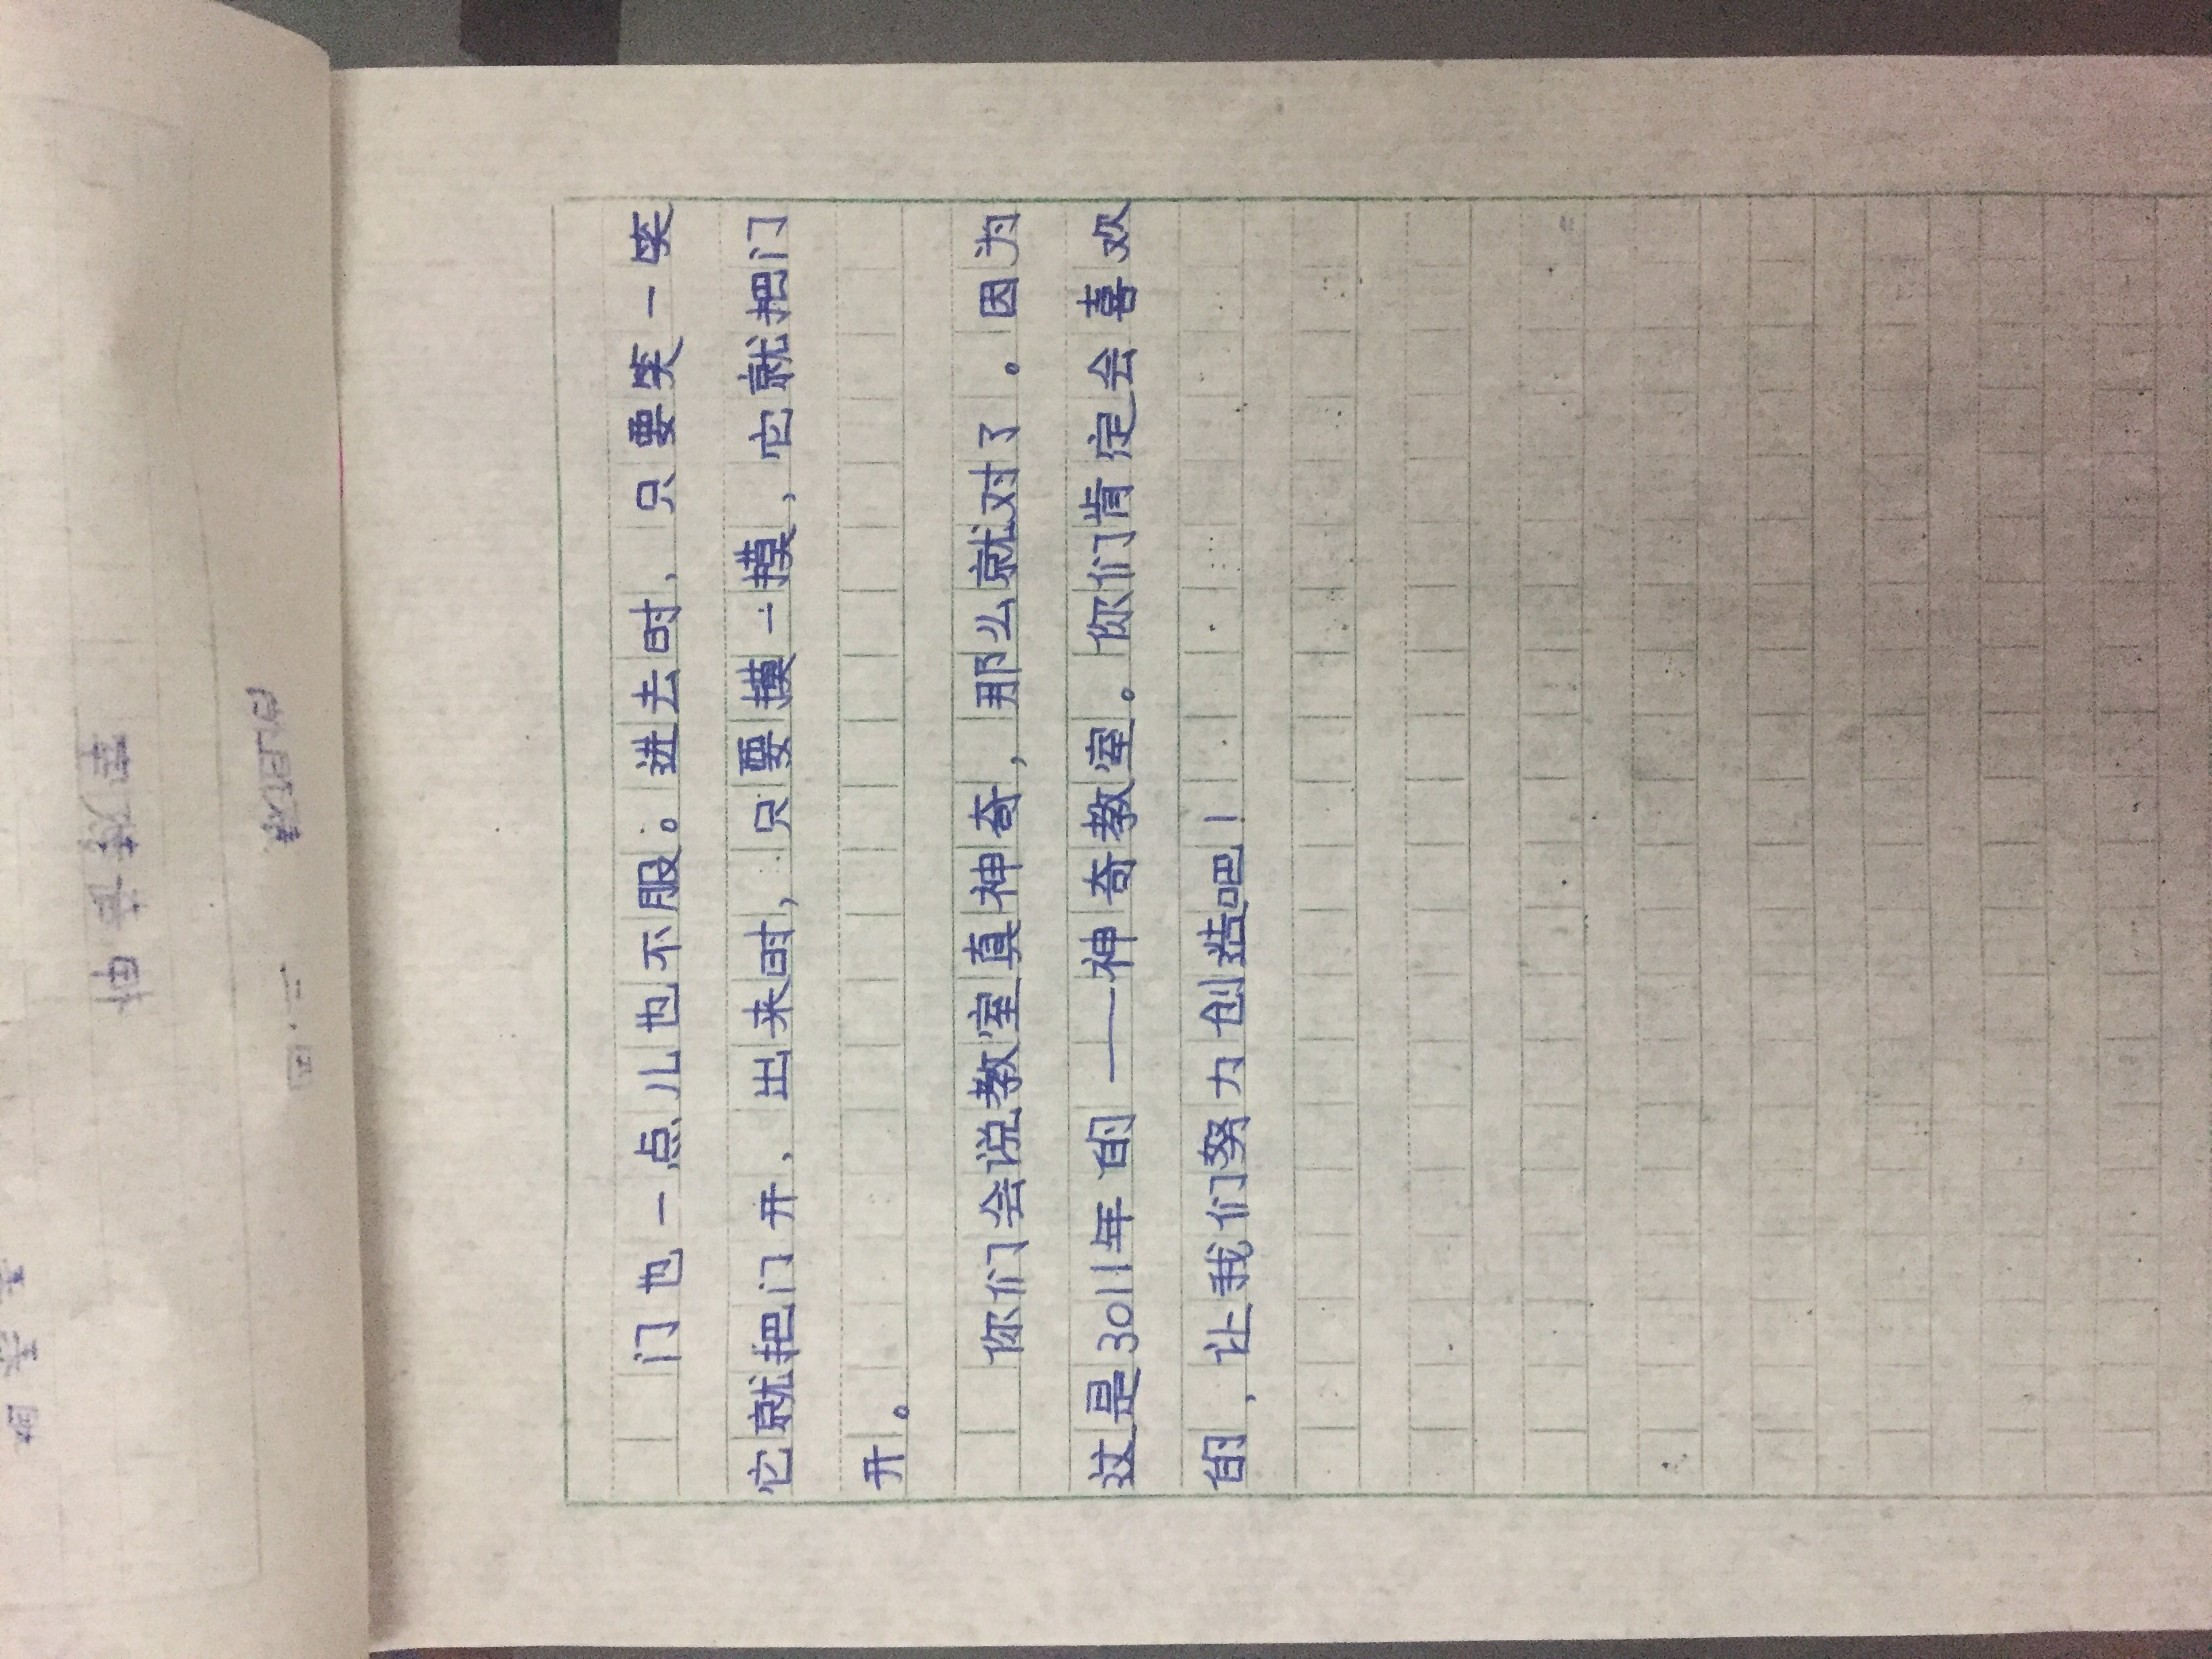 门也一点儿也不服。进去时、只要笑一笑
它就把门开、出来时，只要摸一摸，它就把门
开。
你们会说教室真神奇，那么就对了。因为
这是3011年的——神奇教室。你们肯定会喜欢
的，让我们努力创造吧！